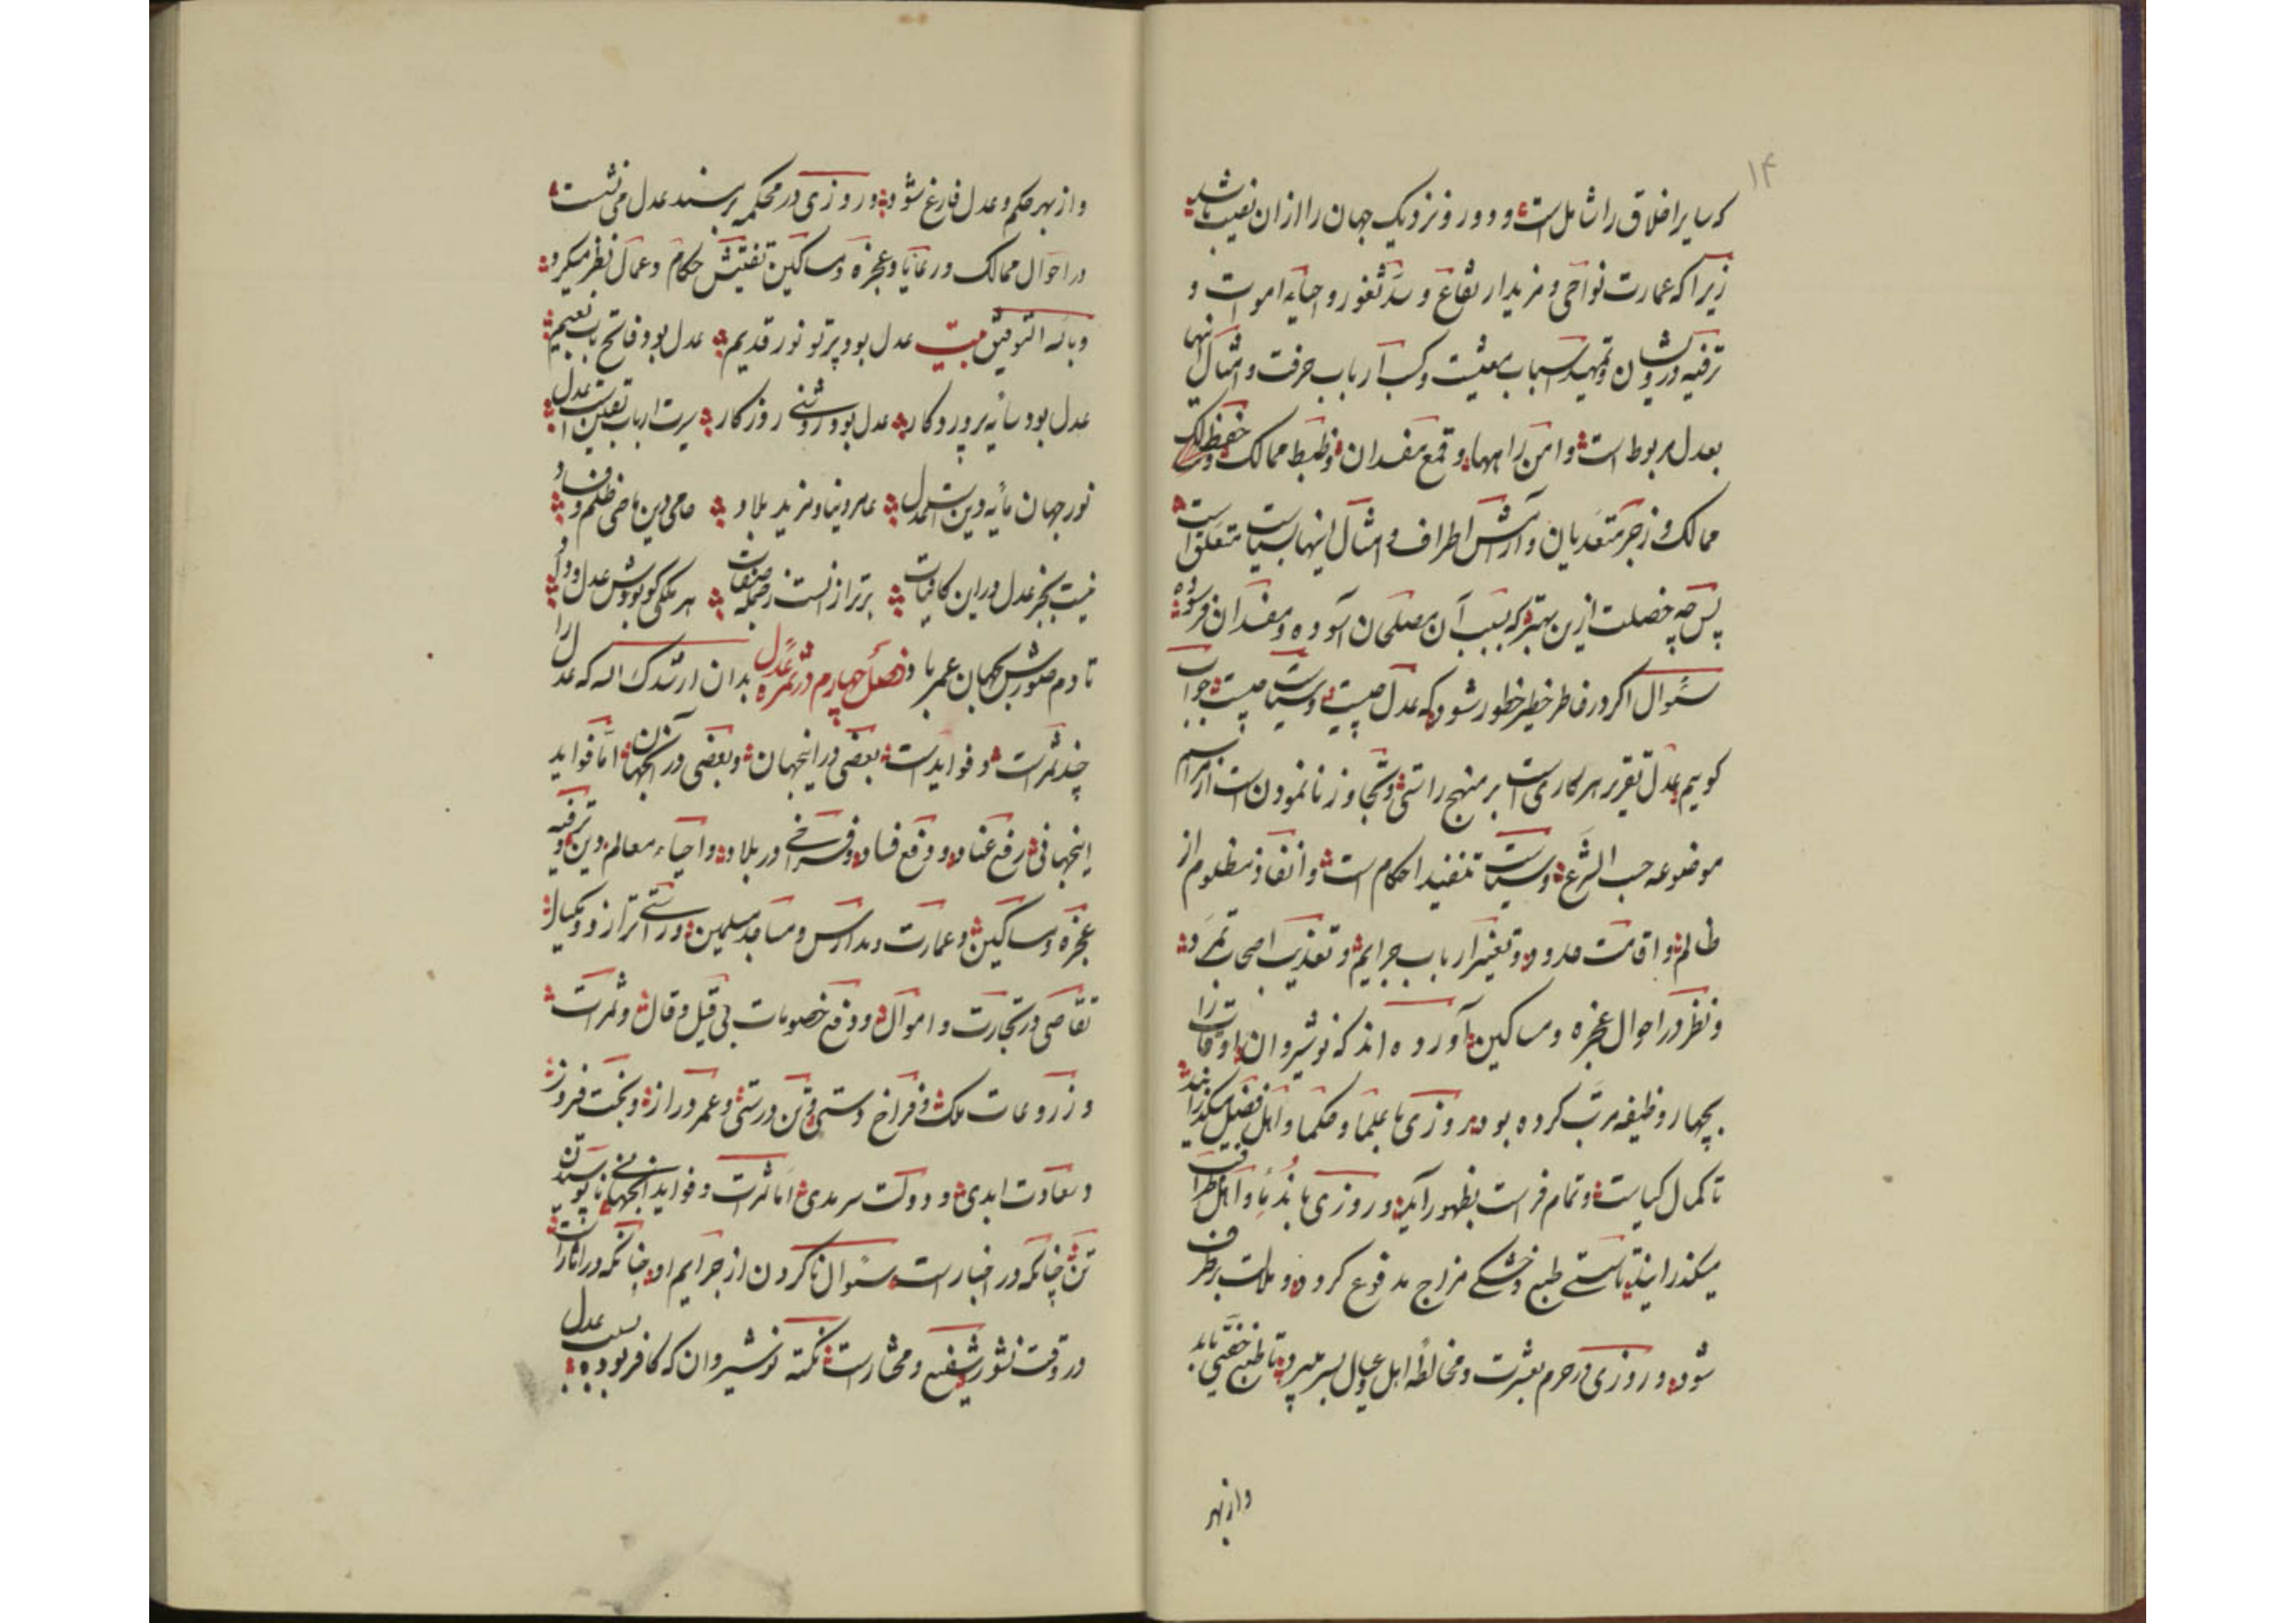 ۱۴
که سایر اخلاق را شامل است و دور و نزدیک جهان را از آن نصیب باشد
زیرا که عمارت نواحی و مزید ارتفاع و سد ثغور و احیاء اموات و
ترفیه درویشان و تمهید اسباب معیشت و کسب ارباب حرفت و امثال اینها
بعدل مربوط است و امن راهها و قمع مفسدان و ضبط ممالک و حفظ
ممالک و زجر متعدیان و آرامش اطراف و امثال اینها بسیاست متعلق است
پس چه خصلت ازین بهتر که بسبب آن مصلحان آسوده و مفسدان فرسوده
سئوال اگر در خاطر خطیر خطور شود که عدل چیست و سیاست چیست جواب
کوییم عدل تقریر هر کاری است بر منهج راستی و تجاوز نانمودن است از مراسم
موضوعه حسب الشرع و سیاست تنفیذ احکام است و انقاذ مظلوم از
ظالم و اقامت حدود و تعزیر ارباب جرایم و تعذیب اصحاب تمرد
و نظر در احوال عجزه و مساکین آورده اند که نوشیروان اوقات را
بچهار وظیفه مرتب کرده بود روزی با علما و حکما و اهل فضل میکذرانید
تا کمال کیاست و تمام فراست بظهور آید و روزی با ندما و اهل ظرافت
میکذرانید تا سستی طبع و خشکی مزاج مدفوع کرود و ملالت برطرف
شود و روزی در حرم بعشرت و مخالطه اهل و عیال بسر میبرد تا طبع خفتی یابد
و از بهر
و از بهر حکم و عدل فارغ شود و روزی در محکمه بر مسند عدل می نشست
در احوال ممالک و رعایا و عجزه و مساکین تفتیش حکام و عمال نظر میکرد
و بالله التوفیق بیت عدل بود پرتو نور قدیم عدل بود فاتح باب نعیم
عدل بود سایه پروردکار عدل بود روشنی روزکار سیرت ارباب یقین است عدل
نور جهان مایه دین است عدل عامر دنیا و مزید بلاد حامی دین ماحی ظلم و فساد
نیست بجز عدل در این کاینات برتر از آنست ز جمله صفات هر ملکی کو بودش عدل و داد
تا دم صورش بجهان عمر باد فصل چهارم در ثمره عدل بدان ارشدک الله که عدل را
چند ثمرات و فواید است بعضی در اینجهان و بعضی در آنجهان اما فواید
اینجهانی رفع عناد و دفع فساد و فراخی در بلاد و احیاء معالم دین و ترفیه
عجزه و مساکین و عمارت مدارس و مساجد مسلمین و راستی ترازو و مکیال
تقاصی در تجارت و اموال و دفع خصومات بی قیل و قال و ثمرات
و زروعات ملک و فراخ دستی و تن درستی و عمر دراز و بخت فیروز
و سعادت ابدی و دولت سرمدی اما ثمرات و فواید آنجهانی ناپوسیدن
تن چنانکه در اخبار است سئوال ناکردن از جرایم او چنانکه در آثار است
در وقت نشور شفیع و مختار است نکته نوشیروان که کافر بود بسبب عدل